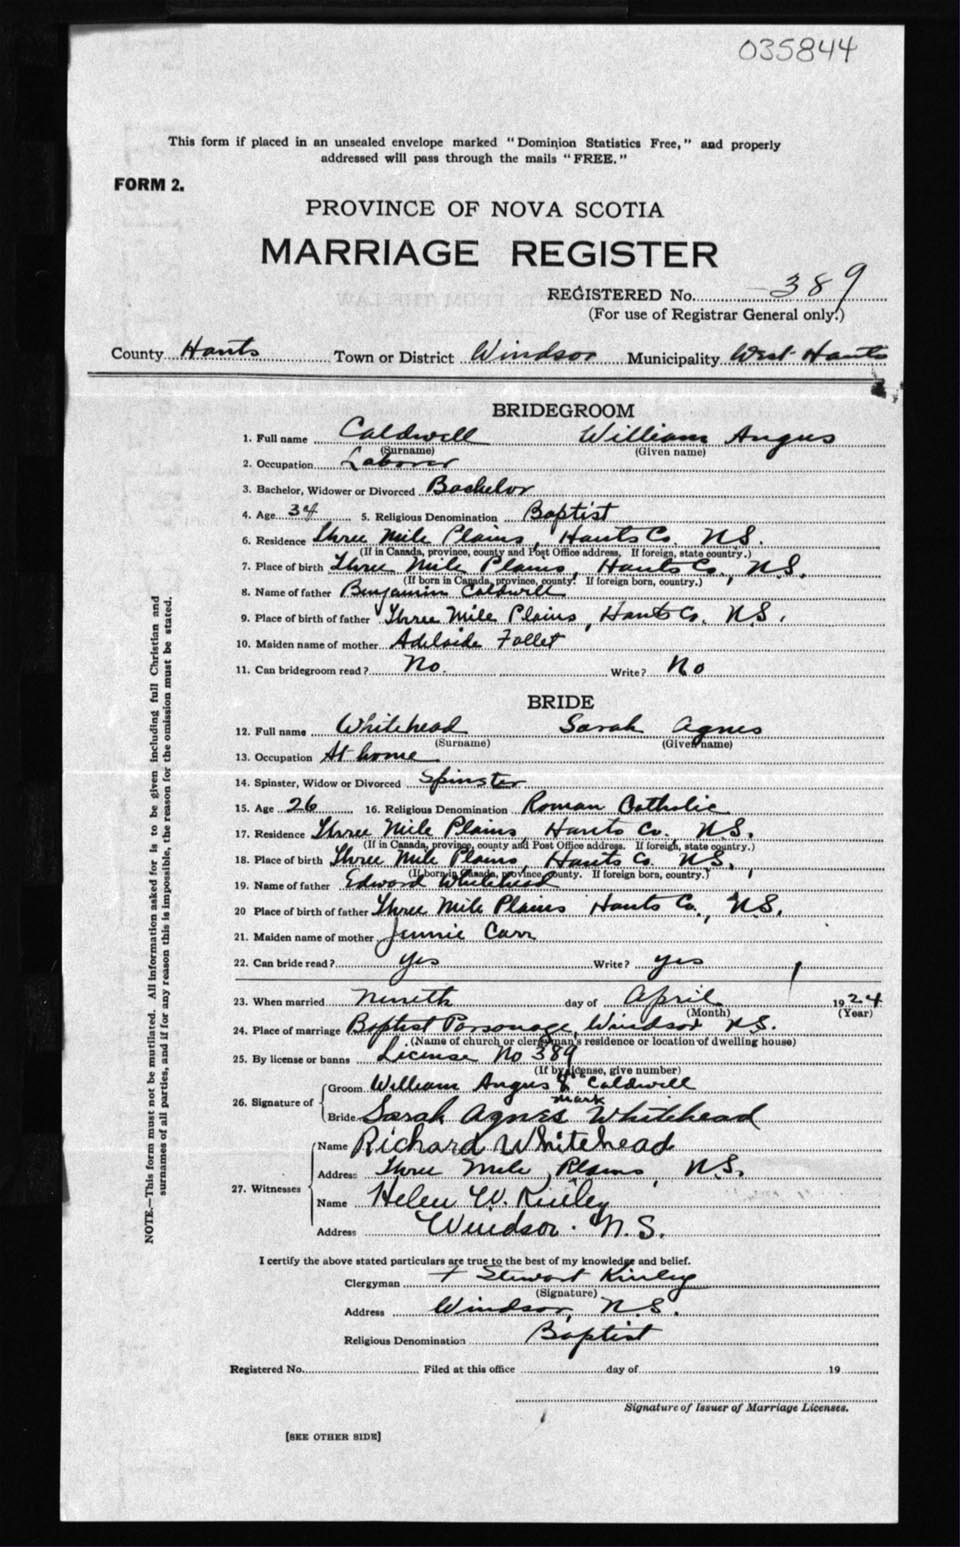 035844
This form if placed in an unsealed envelope marked "Dominion Statistics Free," and properly
addressed will pass through the mails "FREE."
FORM 2.
PROVINCE OF NOVA SCOTIA
MARRIAGE REGISTER
REGISTERED No. 389
(For use of Registrar General only.)
County Hants Town or District Windsor Municipality West Hants
BRIDEGROOM
1. Full name Caldwell William Angus
(Surname) (Given name)
2. Occupation Laborer
3. Bachelor, Widower or Divorced Bachelor
4. Age 34 5. Religious Denomination Baptist
6. Residence Three Mile Plains, Hants Co. N.S.
(If in Canada, province, county and Post Office address. If foreign, state country.)
7. Place of birth Three Mile Plains, Hants Co., N.S.
(If born in Canada, province, county. If foreign born, country.)
8. Name of father Benjamin Caldwell
9. Place of birth of father Three Mile Plains, Hants Co. N.S.
10. Maiden name of mother Adelaide Follet
11. Can bridegroom read? No. Write? No
BRIDE
12. Full name Whitehead Sarah Agnes
(Surname) (Given name)
13. Occupation At home
14. Spinster, Widow or Divorced Spinster
15. Age 26 16. Religious Denomination Roman Catholic
17. Residence Three Mile Plains, Hants Co. N.S.
(If in Canada, province, county and Post Office address. If foreign, state country.)
18. Place of birth Three Mile Plains, Hants Co. N.S.
(If born in Canada, province, county. If foreign born, country.)
19. Name of father Edward Whitehead
20 Place of birth of father Three Mile Plains Hants Co., N.S.
21. Maiden name of mother Jennie Carr
22. Can bride read? yes Write? yes
23. When married Nineth day of April 1924
(Month) (Year)
24. Place of marriage Baptist Parsonage, Windsor N.S.
(Name of church or clergyman's residence or location of dwelling house)
25. By license or banns License No 389
(If by license, give number)
26. Signature of Groom William Angus his X mark Caldwell
Bride Sarah Agnes Whitehead
27. Witnesses Name Richard Whitehead
Address Three Mile Plains, N.S.
Name Helen W. Kinley
Address Windsor. N.S.
I certify the above stated particulars are true to the best of my knowledge and belief.
Clergyman F Stewart Kinley
(Signature)
Address Windsor, N.S.
Religious Denomination Baptist
Registered No. Filed at this office day of 19
Signature of Issuer of Marriage Licenses.
[SEE OTHER SIDE]
NOTE.—This form must not be mutilated. All information asked for is to be given including full Christian and
surnames of all parties, and if for any reason this is impossible, the reason for the omission must be stated.